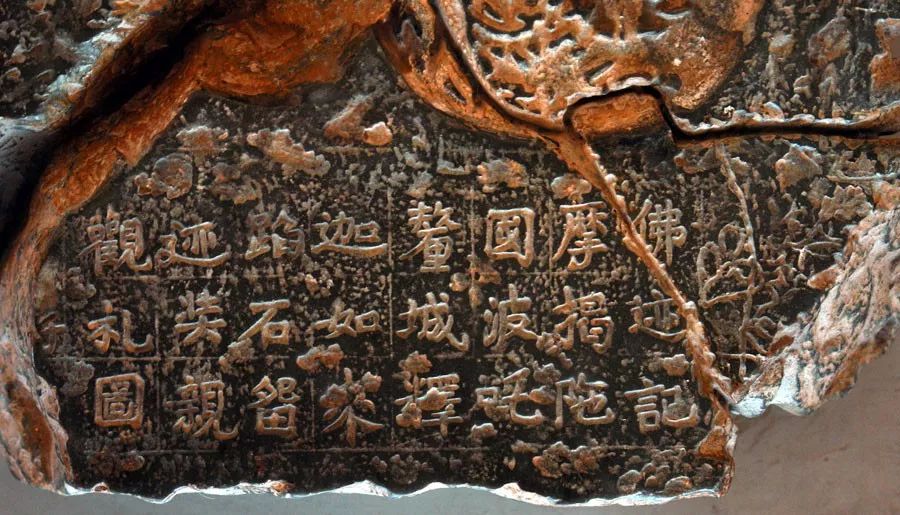 佛迹記
摩揭陁
國波吒
釐城釋
迦如來
蹈石留
迹奘親
觀礼圖